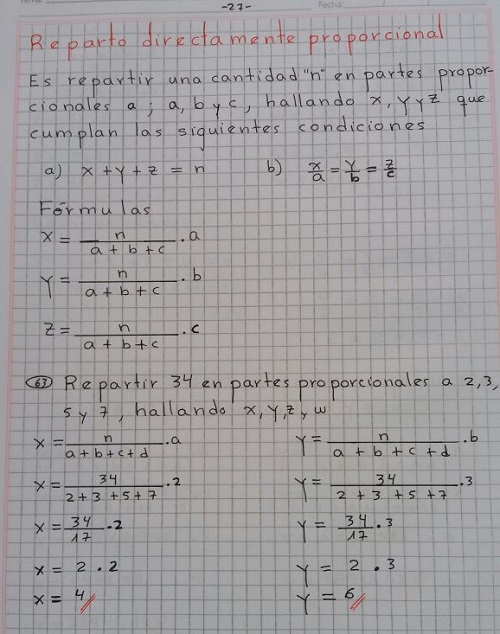 -27-
Fecha:
Reparto directamente proporcional
Es repartir una cantidad "n" en partes propor-
cionales a ; a, b y c, hallando x, y y z que
cumplan las siguientes condiciones
a) x + y + z = n b) x/a = y/b = z/c
Fórmulas
x = n/(a + b + c) . a
y = n/(a + b + c) . b
z = n/(a + b + c) . c
63 Repartir 34 en partes proporcionales a 2, 3,
5 y 7, hallando x, y, z y w
x = n/(a + b + c + d) . a y = n/(a + b + c + d) . b
x = 34/(2 + 3 + 5 + 7) . 2 y = 34/(2 + 3 + 5 + 7) . 3
x = 34/17 . 2 y = 34/17 . 3
x = 2 . 2 y = 2 . 3
x = 4 y = 6